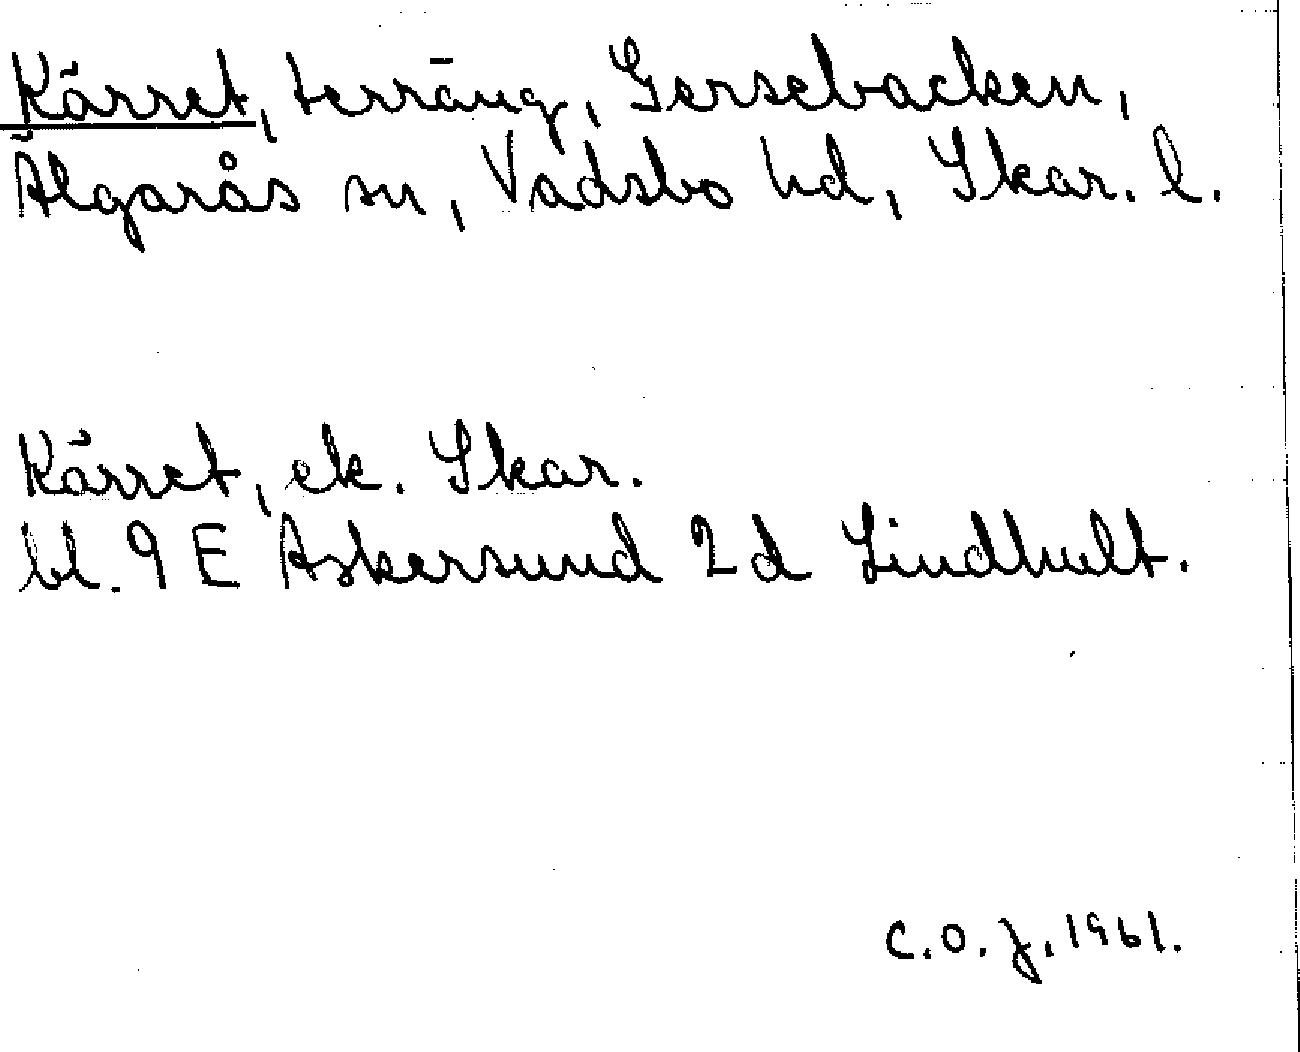 Kärret, terräng, Gersebacken,
Älgarås sn, Vadsbo hd, Skar. l.
Kärret, ek. Skar.
bl. 9 E Askersund 2 d Lindhult.
C.O.J. 1961.